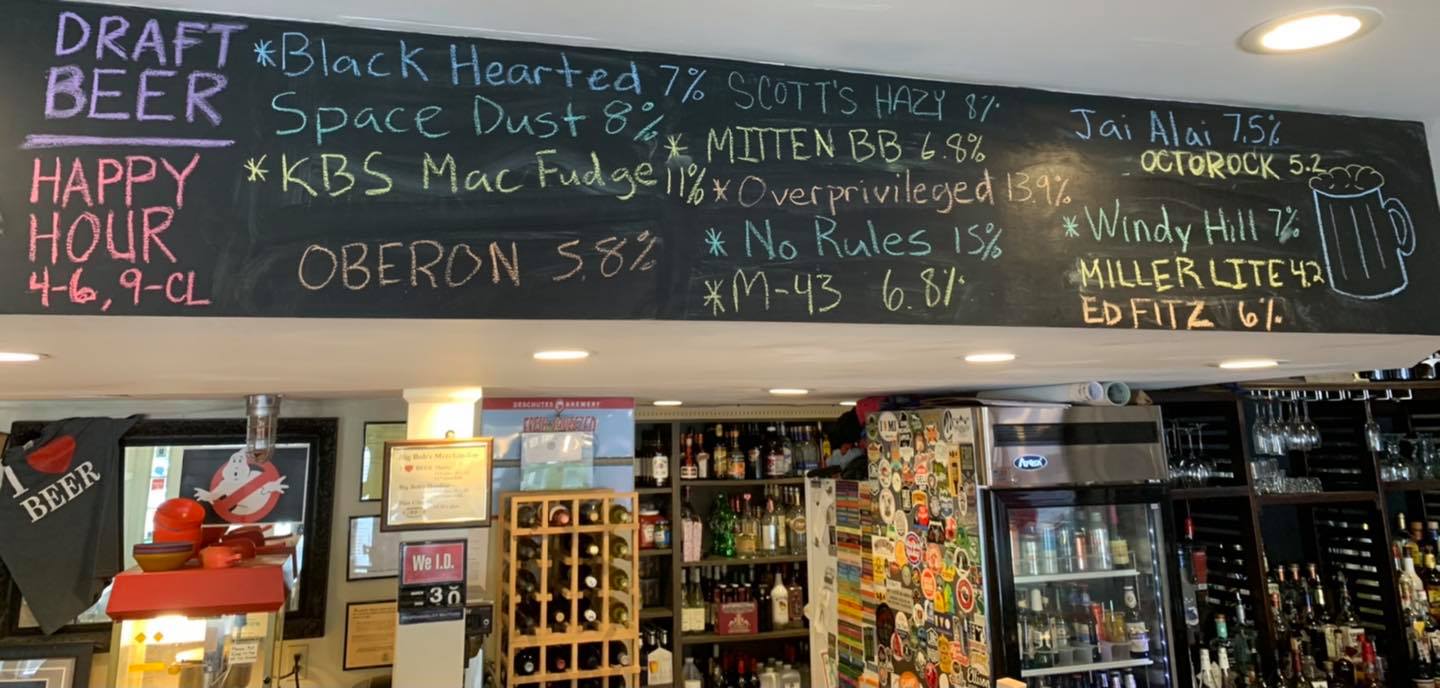 DRAFT
BEER
HAPPY
HOUR
4-6, 9-CL
*Black Hearted 7%
Space Dust 8%
*KBS Mac Fudge 11%
OBERON 5.8%
SCOTT'S HAZY 8%
* MITTEN BB 6.8%
*Overprivileged 13.9%
* No Rules 15%
*M-43 6.8%
Jai Alai 7.5%
OCTOROCK 5.2
*Windy Hill 7%
MILLER LITE 4.2
ED FITZ 6%
I
BEER
DESCHUTES BREWERY
We I.D.
30
Avex